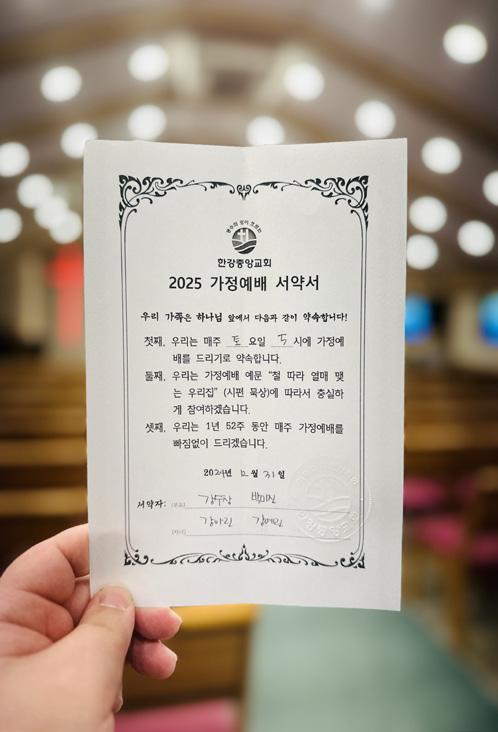 한강중앙교회
2025 가정예배 서약서
우리 가족은 하나님 앞에서 다음과 같이 약속합니다!
첫째, 우리는 매주 토 요일 5 시에 가정예
배를 드리기로 약속합니다.
둘째, 우리는 가정예배 예문 "철 따라 열매 맺
는 우리집" (시편 묵상)에 따라서 충실하
게 참여하겠습니다.
셋째, 우리는 1년 52주 동안 매주 가정예배를
빠짐없이 드리겠습니다.
2024년 12월 31일
서약자: (부모)
강아린 강예린
(자녀)